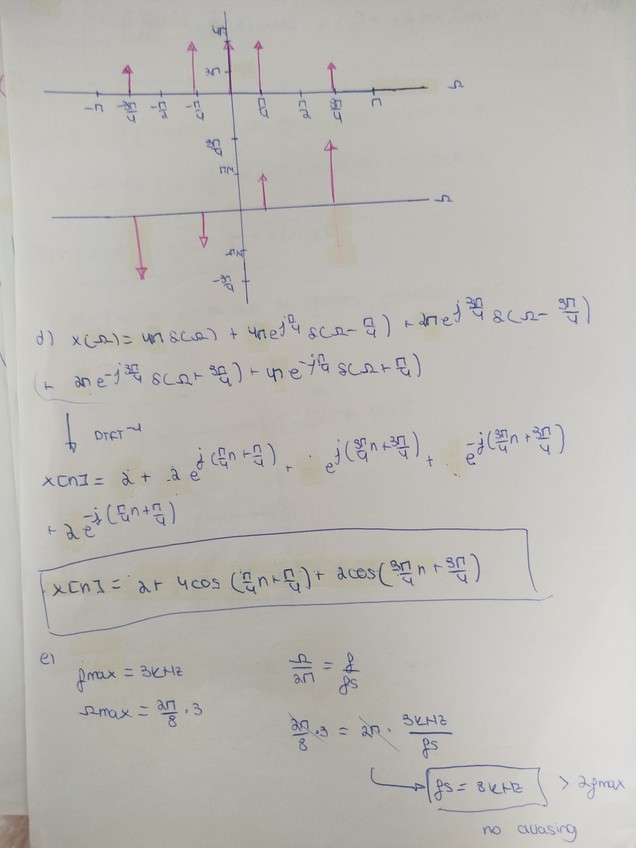 4π
2π
-π -3π/4 -π/2 -π/4 π/4 π/2 3π/4 π Ω
3π/4
π/2
Ω
-π/2
-3π/4
d) X(Ω) = 4π δ(Ω) + 4π e^{jπ/4} δ(Ω - π/4) + 2π e^{j3π/4} δ(Ω - 3π/4)
+ 2π e^{-j3π/4} δ(Ω + 3π/4) + 4π e^{-jπ/4} δ(Ω + π/4)
↓ DTFT^{-1}
x[n] = 2 + 2 e^{j(π/4 n + π/4)} + e^{j(3π/4 n + 3π/4)} + e^{-j(3π/4 n + 3π/4)}
+ 2 e^{-j(π/4 n + π/4)}
x[n] = 2 + 4 cos (π/4 n + π/4) + 2 cos (3π/4 n + 3π/4)
e)
fmax = 3 kHz
Ωmax = 2π/8 · 3
Ω/2π = f/fs
2π/8 · 3 = 2π · 3kHz/fs
fs = 8 kHz > 2fmax
no aliasing